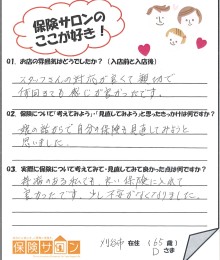 保険サロンの
ここが好き！
01. お店の雰囲気はどうでしたか？（入店前と入店後）
スタッフさんの対応が良くて親切で
何回きても感じが良かったです。
02. 保険について「考えてみよう」・「見直してみよう」と思ったきっかけは何ですか？
娘の話から自分の保険も見直してみようと
思いました。
03. 実際に保険について考えてみて・見直してみて良かった点は何ですか？
ある私でも、良い保険に入れて
良かったです。少し不安がなくなりました。
保険サロン
在住（65歳）
Dさま